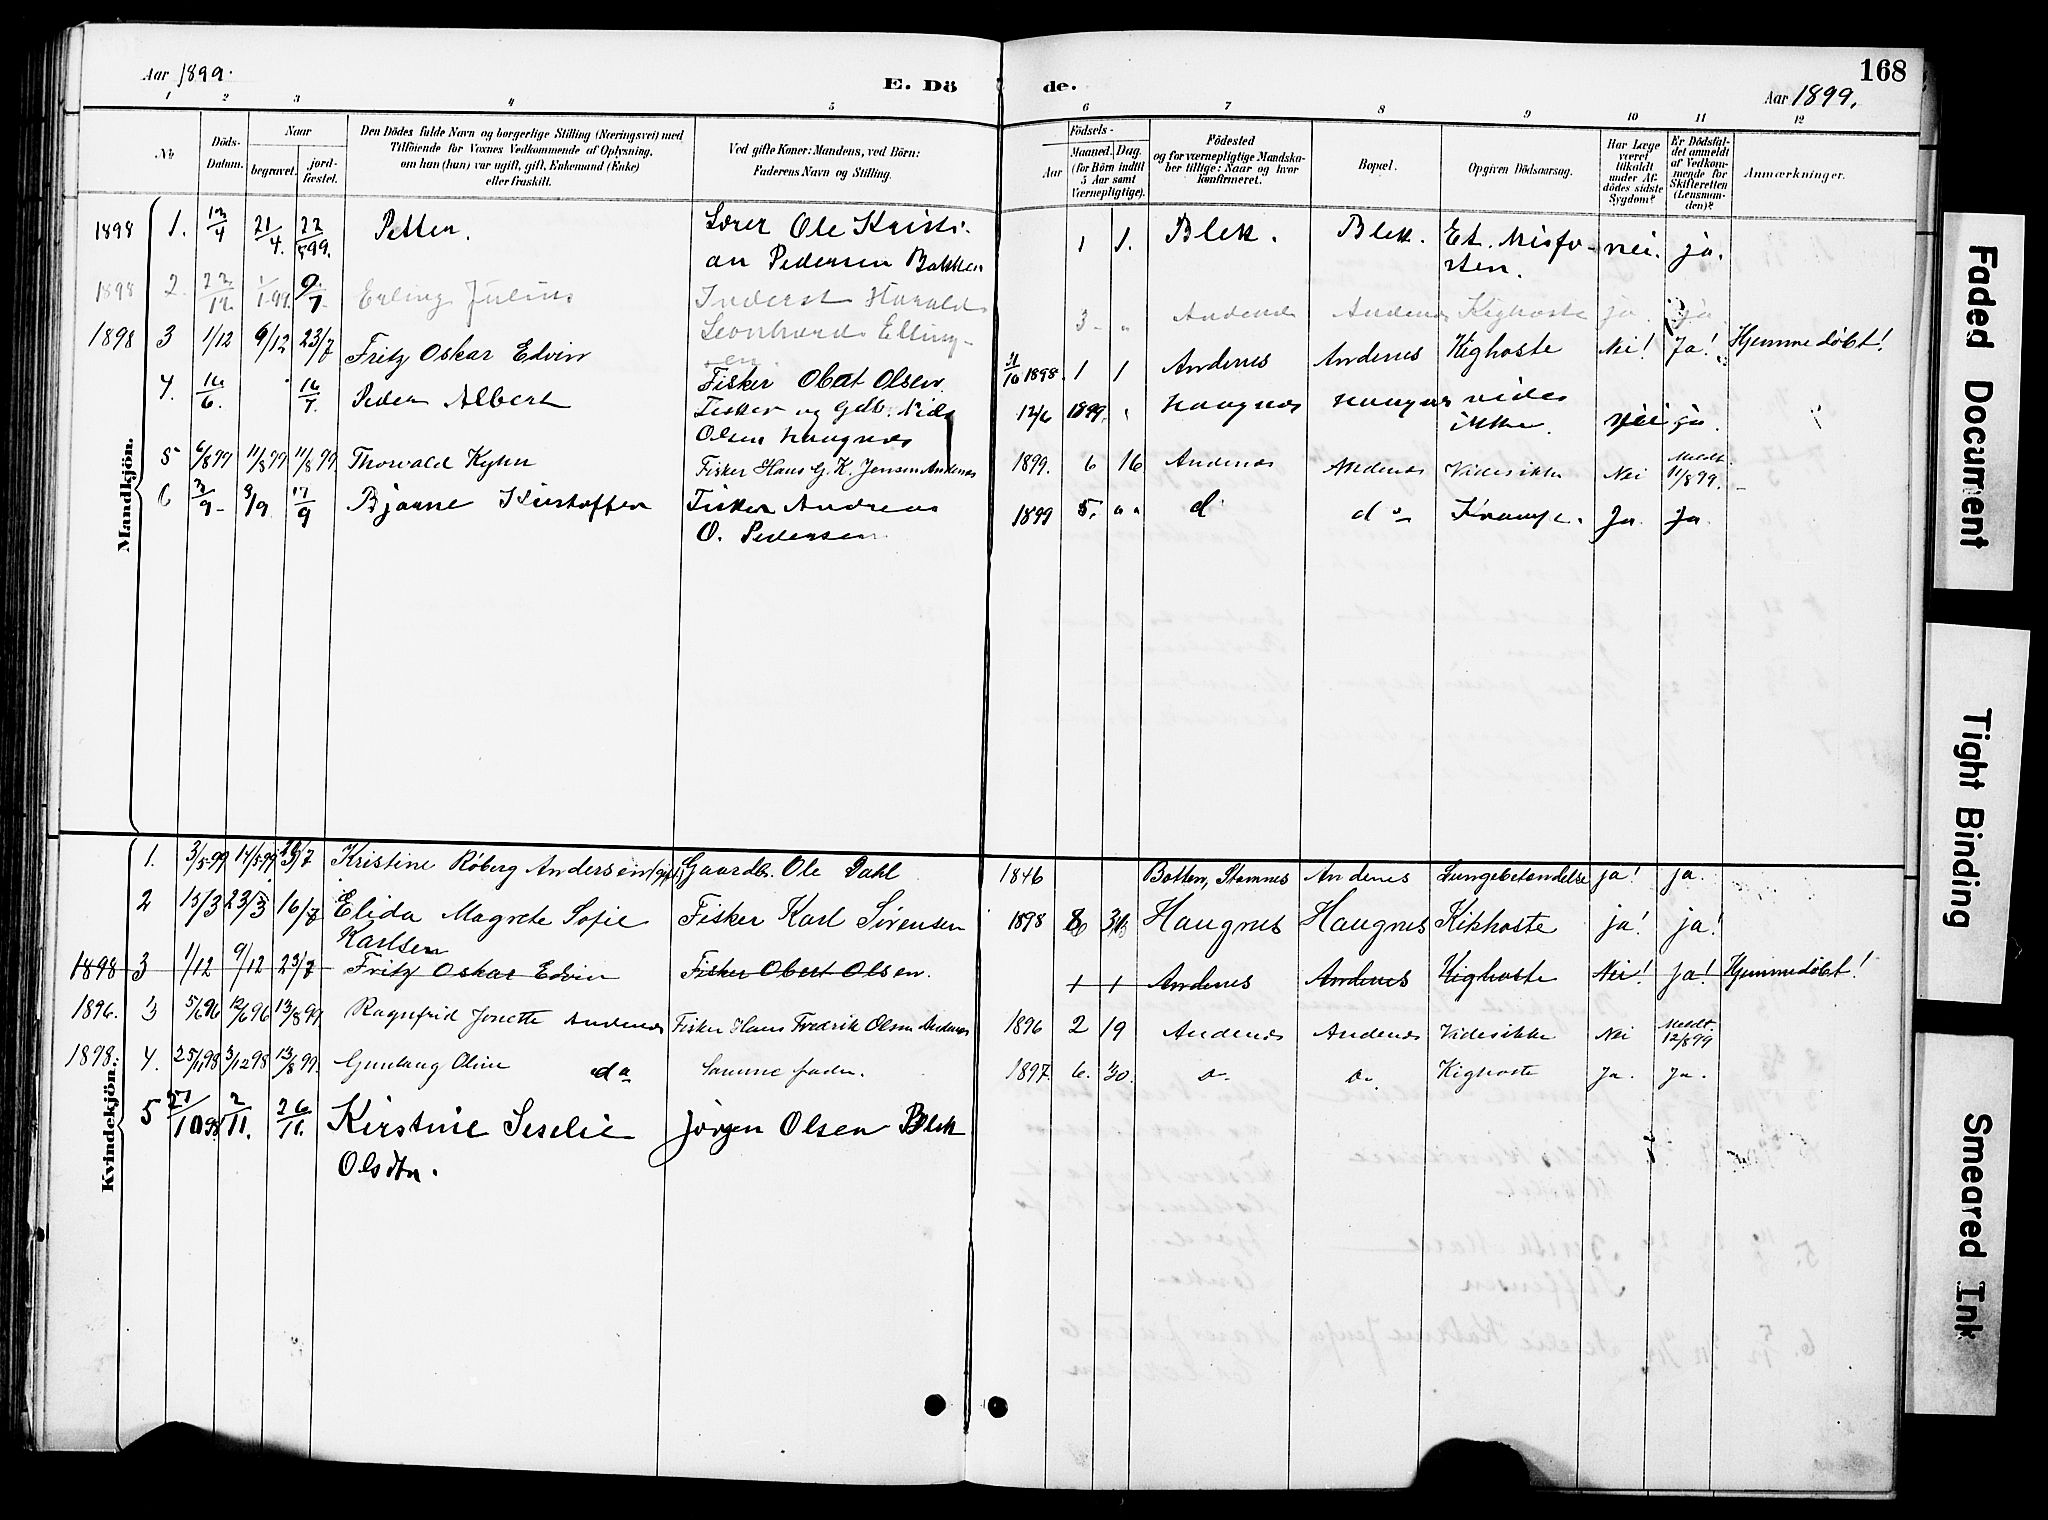 Aar 1899.
E. Dö
de.
168
Aar 1899.
1 2 3 4 5 6 7 8 9 10 11 12
No
Döds-
Datum.
Naar
begravet.
jord-
fæstet.
Den Dödes fulde Navn og borgerlige Stilling (Næringsvei) med
Tilföiende for Voxnes Vedkommende af Oplysning,
om han (hun) var ugift, gift, Enkemand (Enke)
eller fraskilt.
Ved gifte Koner: Mandens, ved Börn:
Faderens Navn og Stilling.
Födsels-
Aar
Maaned.
Dag.
(for Börn indtil
5 Aar samt
Værnepligtige).
Födested
og for værnepligtige Mandska-
ber tillige: Naar og hvor
konfirmeret.
Bopæl.
Opgiven Dödsaarsag.
Har Læge
været
tilkaldt
under Af-
dödes sidste
Sygdom?
Er Dödsfal-
det anmeldt
af Vedkom-
mende for
Skifteretten
(Lensman-
den)?
Anmærkninger.
Mandkjön.
1898 1. 13/4 21/4. 22/5 99. Petter. Lærer Ole Kristi- 1 1. Blek. Blek. Et. Misfo- nei. ja.
an Pedersen Bakken ster.
1898 2. 22/12 1/1 99. 9/7 Erling Julius Inderst Harald 3 " Andenes Andenes Kighoste ja. ja.
Leonhard Elling-
sen
1898 3 1/12 9/12 23/7 Fritz Oskar Edvin Fisker Obert Olsen. 31/10 1898. 1 1 Andenes Andenes Kighoste Nei! Ja! Hjemmedøbt!
4. 12/6. 16/7. Peder Albert Fisker og Gdb. Nils 12/6 1899. " Haugnes Haugnes vides nei ja.
Olsen Haugnes ikke.
5 6/8 99 11/8 99 11/8 99. Thorvald Kyhn Fisker Hans G. K. Jensen Andenes 1899. 6 16 Andenes Andenes Videsikke Nei Meldt 11/8 99.
6 3/9 9/9 17/9 Bjarne Kristoffer Fisker Andreas 1899 5. " " d do Krampe. Ja. Ja.
O. Pedersen.
Kvindekjön.
1. 3/5 99 14/5 99 23/7 Kristine Røberg Andersen (gift) Gaardbr. Ole Dahl 1846 Botten, Stamnes Andenes Lungebetændelse ja! ja.
2 15/3 23/3 16/7 Elida Magrete Sofie Fisker Karl Sørensen 1898 Haugnes Haugnes Kikhoste ja! ja!
Karlsen
1898 3 1/12 9/12 23/7 Fritz Oskar Edvin Fisker Obert Olsen. 1 1 Andenes Andenes Kighoste Nei! ja! Hjemmedøbt!
1896. 3 5/6 96 12/6 96 13/8 99 Ragnfrid Jonette Andenes Fisker Hans Fredrik Olsen Andenes 1896 2 19 Andenes Andenes Videsikke Nei Meldt 12/8 99
1898. 4. 25/11 98 3/12 98 13/8 99. Gunlaug Oline do Samme fader. 1897. 6. 30. Do. Do. Kighoste Ja. Ja.
5 27/10 98 2/11. 26/11. Kirstine Seselie Jörgen Olsen Blek
Olsdtr.
Faded Document
Tight Binding
Smeared Ink